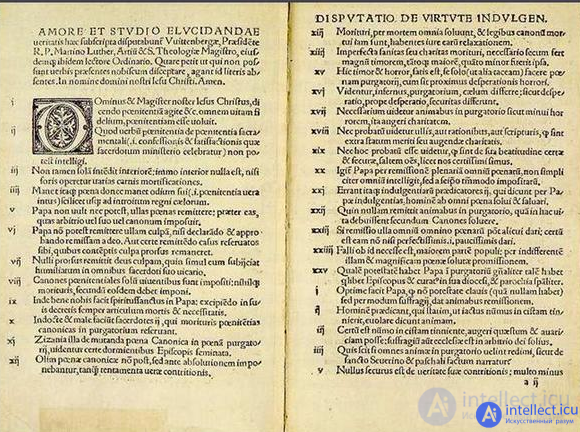 AMORE ET STVDIO ELVCIDANDAE
ueritatis hæc subscripta disputabunt̃ Vuittenbergæ, Præsidẽte
R. P. Martino Luther, Artiũ & S. Theologiæ Magistro, eius-
demq̃ ibidem lectore Ordinario. Quare petit ut qui non pos-
sunt uerbis præsentes nobiscum disceptare, agant id literis absen-
tes. In nomine domini nostri Iesu Christi. Amen.
i DOminus & Magister noster Iesus Christus, di-
cendo pœnitentiã agite &c. omnem uitam fi-
delium, pœnitentiam esse uoluit.
ij Quod uerbũ pœnitentia de pœnitentia sacra-
mentali (.i. confessionis & satisfactionis quæ
sacerdotum ministerio celebratur) non po-
test intelligi.
iij Non tamen solã intẽdit interiorẽ: immo interior nulla est, nisi
foris operetur uarias carnis mortificationes.
iiij Manet itaq̃ pœna donec manet odium sui (.i. pœnitentia uera
intus) scilicet usq̃ ad introitum regni cælorum.
v Papa non uult nec potest, ullas pœnas remittere: præter eas,
quas arbitrio uel suo uel canonum imposuit.
vj Papa nõ potest remittere ullam culpã, nisi declarãdo & appro-
bando remissam a deo. Aut certe remittẽdo casus reseruatos
sibi, quibus contẽptis culpa prorsus remaneret.
vij Nulli prorsus remittit deus culpam, quin simul eum subijciat
humiliatum in omnibus sacerdoti suo uicario.
viij Canones pœnitentiales solũ uiuentibus sunt impositi: nihilq̃
morituris, secundũ eosdem debet imponi.
ix Inde bene nobis facit spiritussanctus in Papa: excipiẽdo in su-
is decretis semper articulum mortis & necessitatis.
x Indocte & male faciũt sacerdotes ij, qui morituris pœnitẽtias
canonicas in purgatorium reseruant.
xj Zizania illa de mutanda pœna Canonica in pœnã purgato-
rij, uidentur certe dormientibus Episcopis seminata.
xij Olim pœnæ canonicæ nõ post, sed ante absolutionem impo-
nebantur, tanq̃ tentamenta ueræ contritionis.
DISPVTATIO DE VIRTVTE INDVLGEN.
xiij Morituri, per mortem omnia soluunt, & legibus canonũ mor-
tui iam sunt, habentes iure earũ relaxationem.
xiiij Imperfecta sanitas seu charitas morituri, necessario secum fert
magnũ timorem, tãtoq̃ maiorẽ, quãto minor fuerit ipsa.
xv Hic timor & horror, satis est, se solo (ut alia taceam) facere pœ-
nam purgatorij, cum sit proximus desperationis horrori.
xvj Videntur, infernus, purgatorium, cælum differre: sicut despe-
ratio, prope desperatio, securitas differunt.
xvij Necessarium uidetur animabus in purgatorio sicut minui hor-
rorem, ita augeri charitatem.
xviij Nec probatũ uidetur ullis, aut rationibus, aut scripturis, q̃ sint
extra statum meriti seu augendæ charitatis.
xix Nec hoc probatũ esse uidetur, q̃ sint de sua beatitudine certæ
& securæ, saltem oẽs, licet nos certissimi simus.
xx Igit̃ Papa per remissionẽ plenariã omniũ pœnarũ, non simpli-
citer omniũ intelligit, sed a seipso tm̃modo impositarũ.
xxj Errant itaq̃ indulgentiarũ prædicatores ij, qui dicunt per Pa-
pæ indulgentias, hominẽ ab omni pœna solui & saluari.
xxij Quin nullam remittit animabus in purgatorio, quã in hac ui-
ta debuissent secundum Canones soluere.
xxiij Si remissio ulla omnium omnino pœnarũ põt alicui dari; certũ
est eam nõ nisi perfectissimis .i. paucissimis dari.
xxiiij Falli ob id necesse est, maiorem partẽ populi: per indifferentẽ
illam & magnificam pœnæ solutæ promissionem.
xxv Qualẽ potestatẽ habet Papa ĩ purgatoriũ gñaliter, talẽ habet
q̃libet Episcopus & curatus in sua diocesi, & parochia spãliter.
i Optime facit Papa, q̃ nõ potestate clauis (quã nullam habet)
sed per modum suffragij, dat animabus remissionem.
ij Hominẽ prædicant, qui statim, ut iactus nũmus in cistam tin-
nierit, euolare dicunt animam.
iij Certũ est nũmo in cistam tinniente, augeri quæstum & auari-
ciam posse: suffragiũ aũt ecclesiæ est in arbitrio dei solius.
iiij Quis scit si omnes animæ in purgatorio uelint redimi, sicut de
sancto Seuerino & paschali factum narratur.
v Nullus securus est de ueritate suæ contritionis; multo minus
a ij
intellect.icu
Искусственный разум